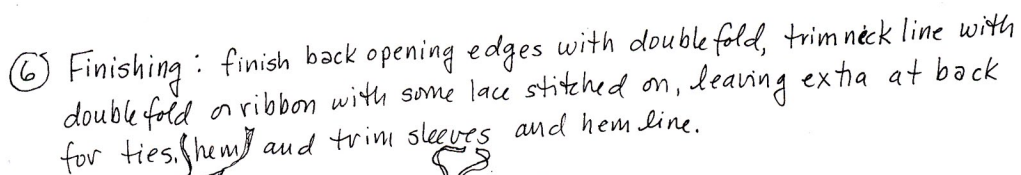 ⑥ Finishing: finish back opening edges with double fold, trim neck line with
double fold or ribbon with some lace stitched on, leaving extra at back
for ties. (hem) and trim sleeves and hem line.